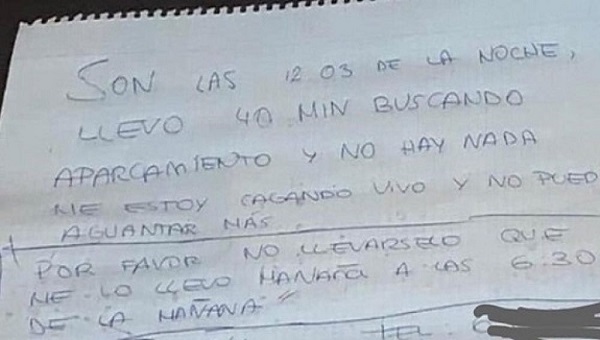 SON LAS 12 03 DE LA NOCHE,
LLEVO 40 MIN BUSCANDO
APARCAMIENTO Y NO HAY NADA
ME ESTOY CAGANDO VIVO Y NO PUED
AGUANTAR MÁS.
POR FAVOR NO LLEVARSELO QUE
ME LO LLEVO MAÑANA A LAS 6:30
DE LA MAÑANA
TEL: 6